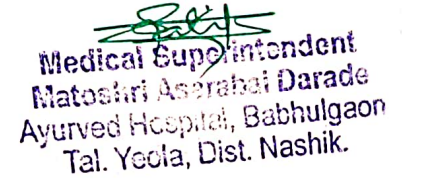 Medical Superintendent
Matoshri Asarabai Darade
Ayurved Hospital, Babhulgaon
Tal. Yeola, Dist. Nashik.